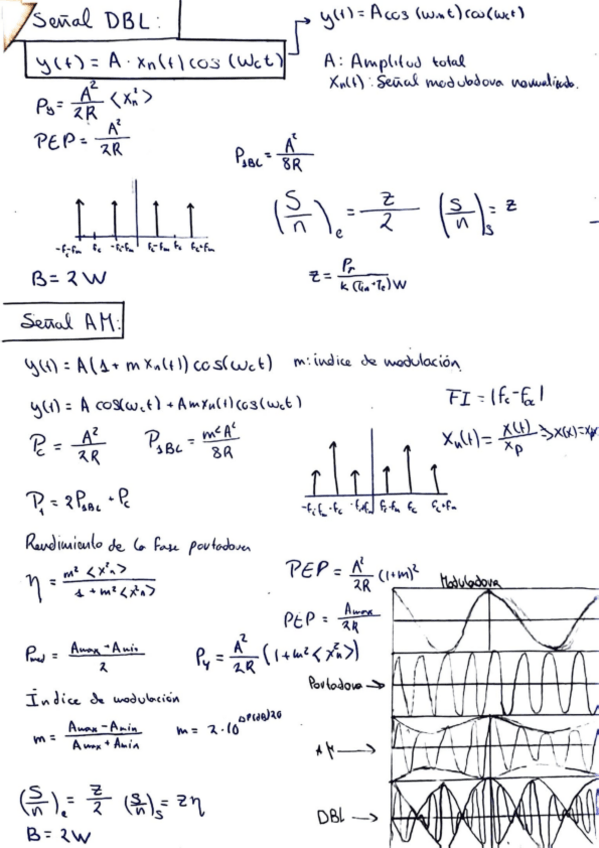 Señal DBL:
y(t) = A cos (ωmt) cos(ωct)
y(t) = A · xn(t) cos (ωct)
A: Amplitud total
Xn(t): Señal moduladora normalizada.
Py = A²/2R <xn²>
PEP = A²/2R
P1BL = A²/8R
(S/n)e = z/2 (S/n)s = z
-fc-fm fc -fc+fm fc-fm fc fc+fm
B = 2W
z = Pr/k(Tin+Te)W
Señal AM:
y(t) = A(1 + m xn(t)) cos(ωct) m: índice de modulación
y(t) = A cos(ωct) + A m xn(t) cos(ωct)
FI = |fc - fol|
Pc = A²/2R P1BL = m²A²/8R
Xn(t) = X(t)/xp
PT = 2P1BL + Pc
Rendimiento de la fase portadora
η = m² <x²n>/1 + m² <x²n>
PEP = A²/2R (1+m)²
Moduladora
PEP = Amax/2R
Pmed = Amax - Amin/2
Py = A²/2R (1+m² <x²n>)
Portadora →
Índice de modulación
m = Amax - Amin/Amax + Amin m = 2·10^ΔP(dB)/20
AM →
(S/n)e = z/2 (S/n)s = zη
DBL →
B = 2W